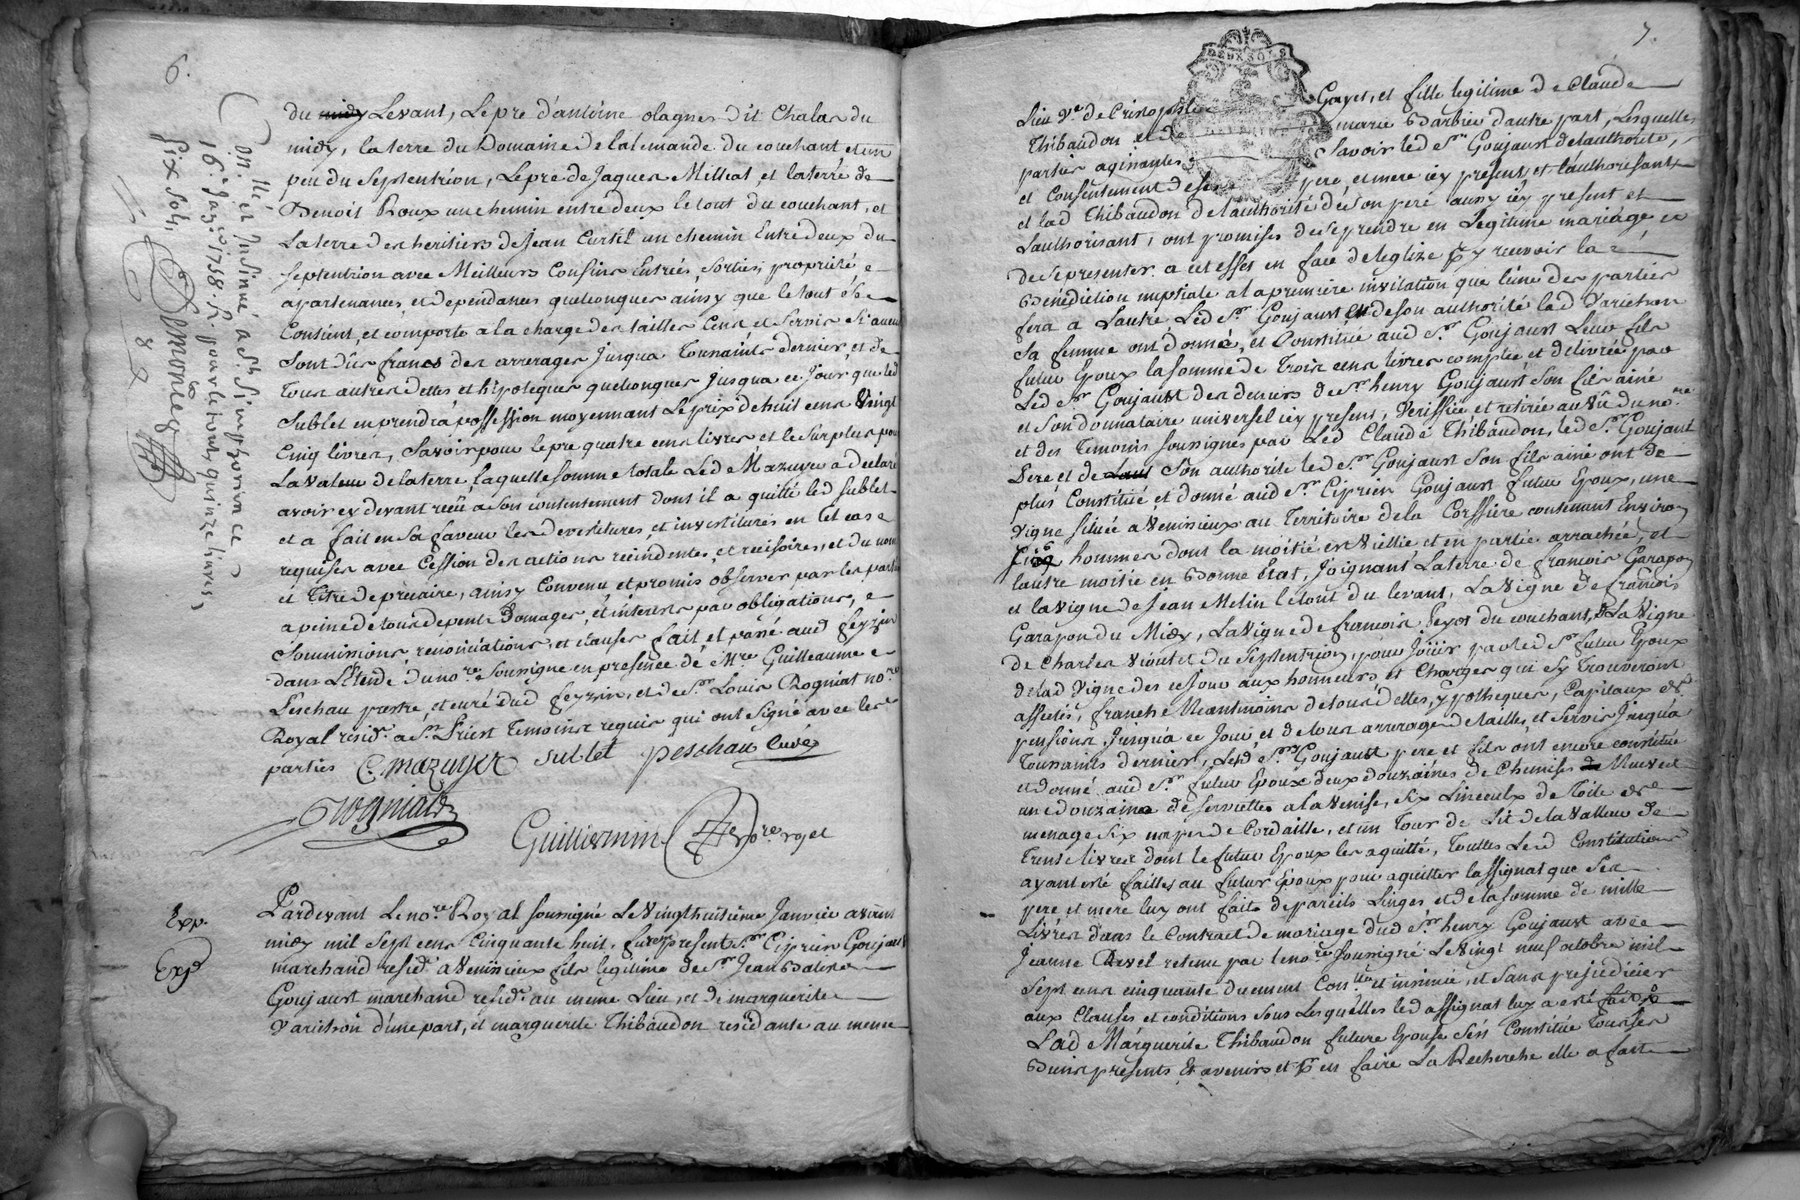 6.
du midy Levant, Le pre d'antoine olagnes dit Chalas du
midy, la terre du Domaine de lalemande du couchant et un
peu du Septentrion, Le pre de Jaques Milliat et la terre de
Benoit Roux un chemin entre deux le tout du couchant, et
La terre des heritiers de Jean Curtil un chemin Entre deux du
septentrion avec Meilleurs Confins Entrées, Sorties, propriété, e
apartenances, et dependances quelconques ainsy que le tout Se
Contient, et comporte a la charge des tailles Cens et Servis Si aucun
Sont dûs francs des arrerages Jusqua Toussaints dernier, et de
Tous autres dettes et hipoteques quelconques Jusqua ce Jour, que led
Sublet en prendra possession moyennant Le prix de huit cens Vingt
Cinq livres, Savoir pour le pre quatre cens livres et le Surplus pour
La valeur de la terre, laquelle somme totale Led Mazuyer a declaré
avoir cy devant reçû a son contentement dont il a quitté led Sublet
et a fait en Sa faveur les devestitures, et investitures en tel cas e
requises avec Cession des actions recindentes, et recisoires, et du nom
et Titre de precaire, ainsy Convenu et promis observer par les parties
a peine de tous depens Domages, et interests par obligations, e
Soumissions, renonciations, et clauses fait, et passé aud feyzin
dans L'Etude du nore. Soussigné en presence de Mre Guilleaume e
Peschau prestre, et curé dud feyzin, et de Sr Louis Rogniat nore
Royal residt a St. Priest Temoins requis qui ont Signé avec les
parties C. mazuyer sublet peschau Curé
Rogniat
Guillermin nore. royal
Con.lle et Insinué a St. Simphorien ce
16e Janv. 1758. R. pour le tout, quinze livres,
six sols,
Exp.
Expd
Pardevant Le nore. Royal soussigné Le Vingthuitieme Janvier avant
midy mil Sept cens Cinquante huit, furent present Sr. Ciprien Goujaust
marchand residt. a Venissieux fils legitime de Sr. Jean Baliser
Goujaust marchand residt. au meme Lieu, et de marguerite
Varichon d'une part, et marguerite Thibaudon residante au meme
7.
DEUX SOLS
Lieu Ve de Cristophle Gayet, et fille legitime de Claude
Thibaudon et de marie Barbier d'autre part, Lesquelles
parties agissantes Savoir led Sr Goujaust de l'authorité,
et Consentement de ses pere, et mere icy presents, et l'authorisants
et lad Thibaudon de l'authorité de son pere aussy icy present et
l'authorisant, ont promises de se prendre en Legitime mariage et
de se presenter a cet effet en face de leglize pr y recevoir la
Bénédiction nuptiale a la premiere invitation que l'une des parties
fera a Lautre, Led Sr. Goujaust et de son authorité lad Varichon
Sa femme ont donné, et Constitué aud Sr. Goujaust Leur fils
futur Epoux la somme de Trois cens livres comptée et delivrée par
Led Sr Goujaust des deniers de Sr henry Goujaust Son fils ainé
et Son donnataire universel icy present, Veriffiée et retirée au Vû du nore
et des Temoins soussignés par Led Claude Thibaudon, led Sr. Goujaust
Pere et de Son authorité led Sr. Goujaust Son fils ainé ont de
plus Constitué et donné aud Sr. Ciprien Goujaust futur Epoux, une
Vigne Située a Venissieux au Territoire de la Corssiere contenant Environ
hommes dont la moitié est Viellie et en partie arrachée, et
l'autre moitié en Bonne Etat, Joignant La terre de francois Garapon
et la vigne de Jean Melin le tout du levant, La Vigne de francois
Garapon du Midy, La Vigne de francois Peyot du couchant, et La Vigne
de Charles Violet du Septentrion, pour Joüir par led Sr futur Epoux
de lad Vigne des ce Jour aux honneurs et Charges qui Sy Trouveront
affectés, franche Néantmoins de tous dettes, ypotheques, Capitaux et
pensions Jusqua ce Jour, et de tous arrerages de tailles, et Servis Jusqua
Toussaints dernier, Lesd Srs Goujaust pere et fils ont encore constitué
et donné aud Sr. futur Epoux deux douzaines de Chemises Neuves
une douzaine de serviettes a la Venise, Six Linceulx de Toile de
menage Six napes de Cordaille, et un Tour de Lit de la Valleur de
Trente livres dont le futur Epoux les a quitté, Toutes Lesd Constitutions
ayant eté faittes au futur Epoux pour aquitter l'assignat que Ses
pere, et mere luy ont fait de pareils Linges et de la somme de mille
Livres dans le Contract de mariage dud Sr. henry Goujaust avec
Jeanne Revel retenu par le nore Soussigné Le Vingt neuf octobre mil
Sept cens cinquante duement Conlle. et insinué, et Sans prejudicier
aux Clauses et conditions Sous Lesquelles led assignat luy a eté fait, &
Lad Marguerite Thibaudon future Epouse s'est Constitué Tous ses
Biens presents & avenirs et pr en faire La Recherche elle a fait